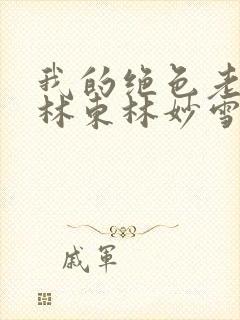 我的绝色老
林东林妙雪
戚军